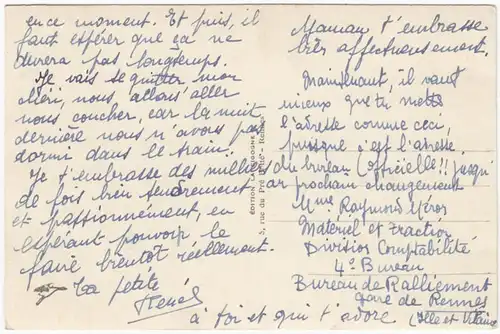 en ce moment. Et puis, il
faut espérer que ça ne
durera pas longtemps.
Je vais te quitter mon
chéri, nous allons aller
nous coucher, car la nuit
dernière nous n'avons pas
dormi dans le train.
Je t'embrasse des milliers
de fois bien tendrement
et passionnément, en
espérant pouvoir le
faire bientôt réellement.
Ta petite
Renée
à toi et qui t'adore
Maman t'embrasse
très affectueusement.
Maintenant, il vaut
mieux que tu mettes
l'adresse comme ceci,
puisque c'est l'adresse
du bureau (officielle!!) jusqu'
au prochain changement
Mme Raymond
Matériel et Traction
Division Comptabilité
4º Bureau
Bureau de Ralliement
gare de Rennes
(Ille et Vilaine
5, rue du Pré - Rennes